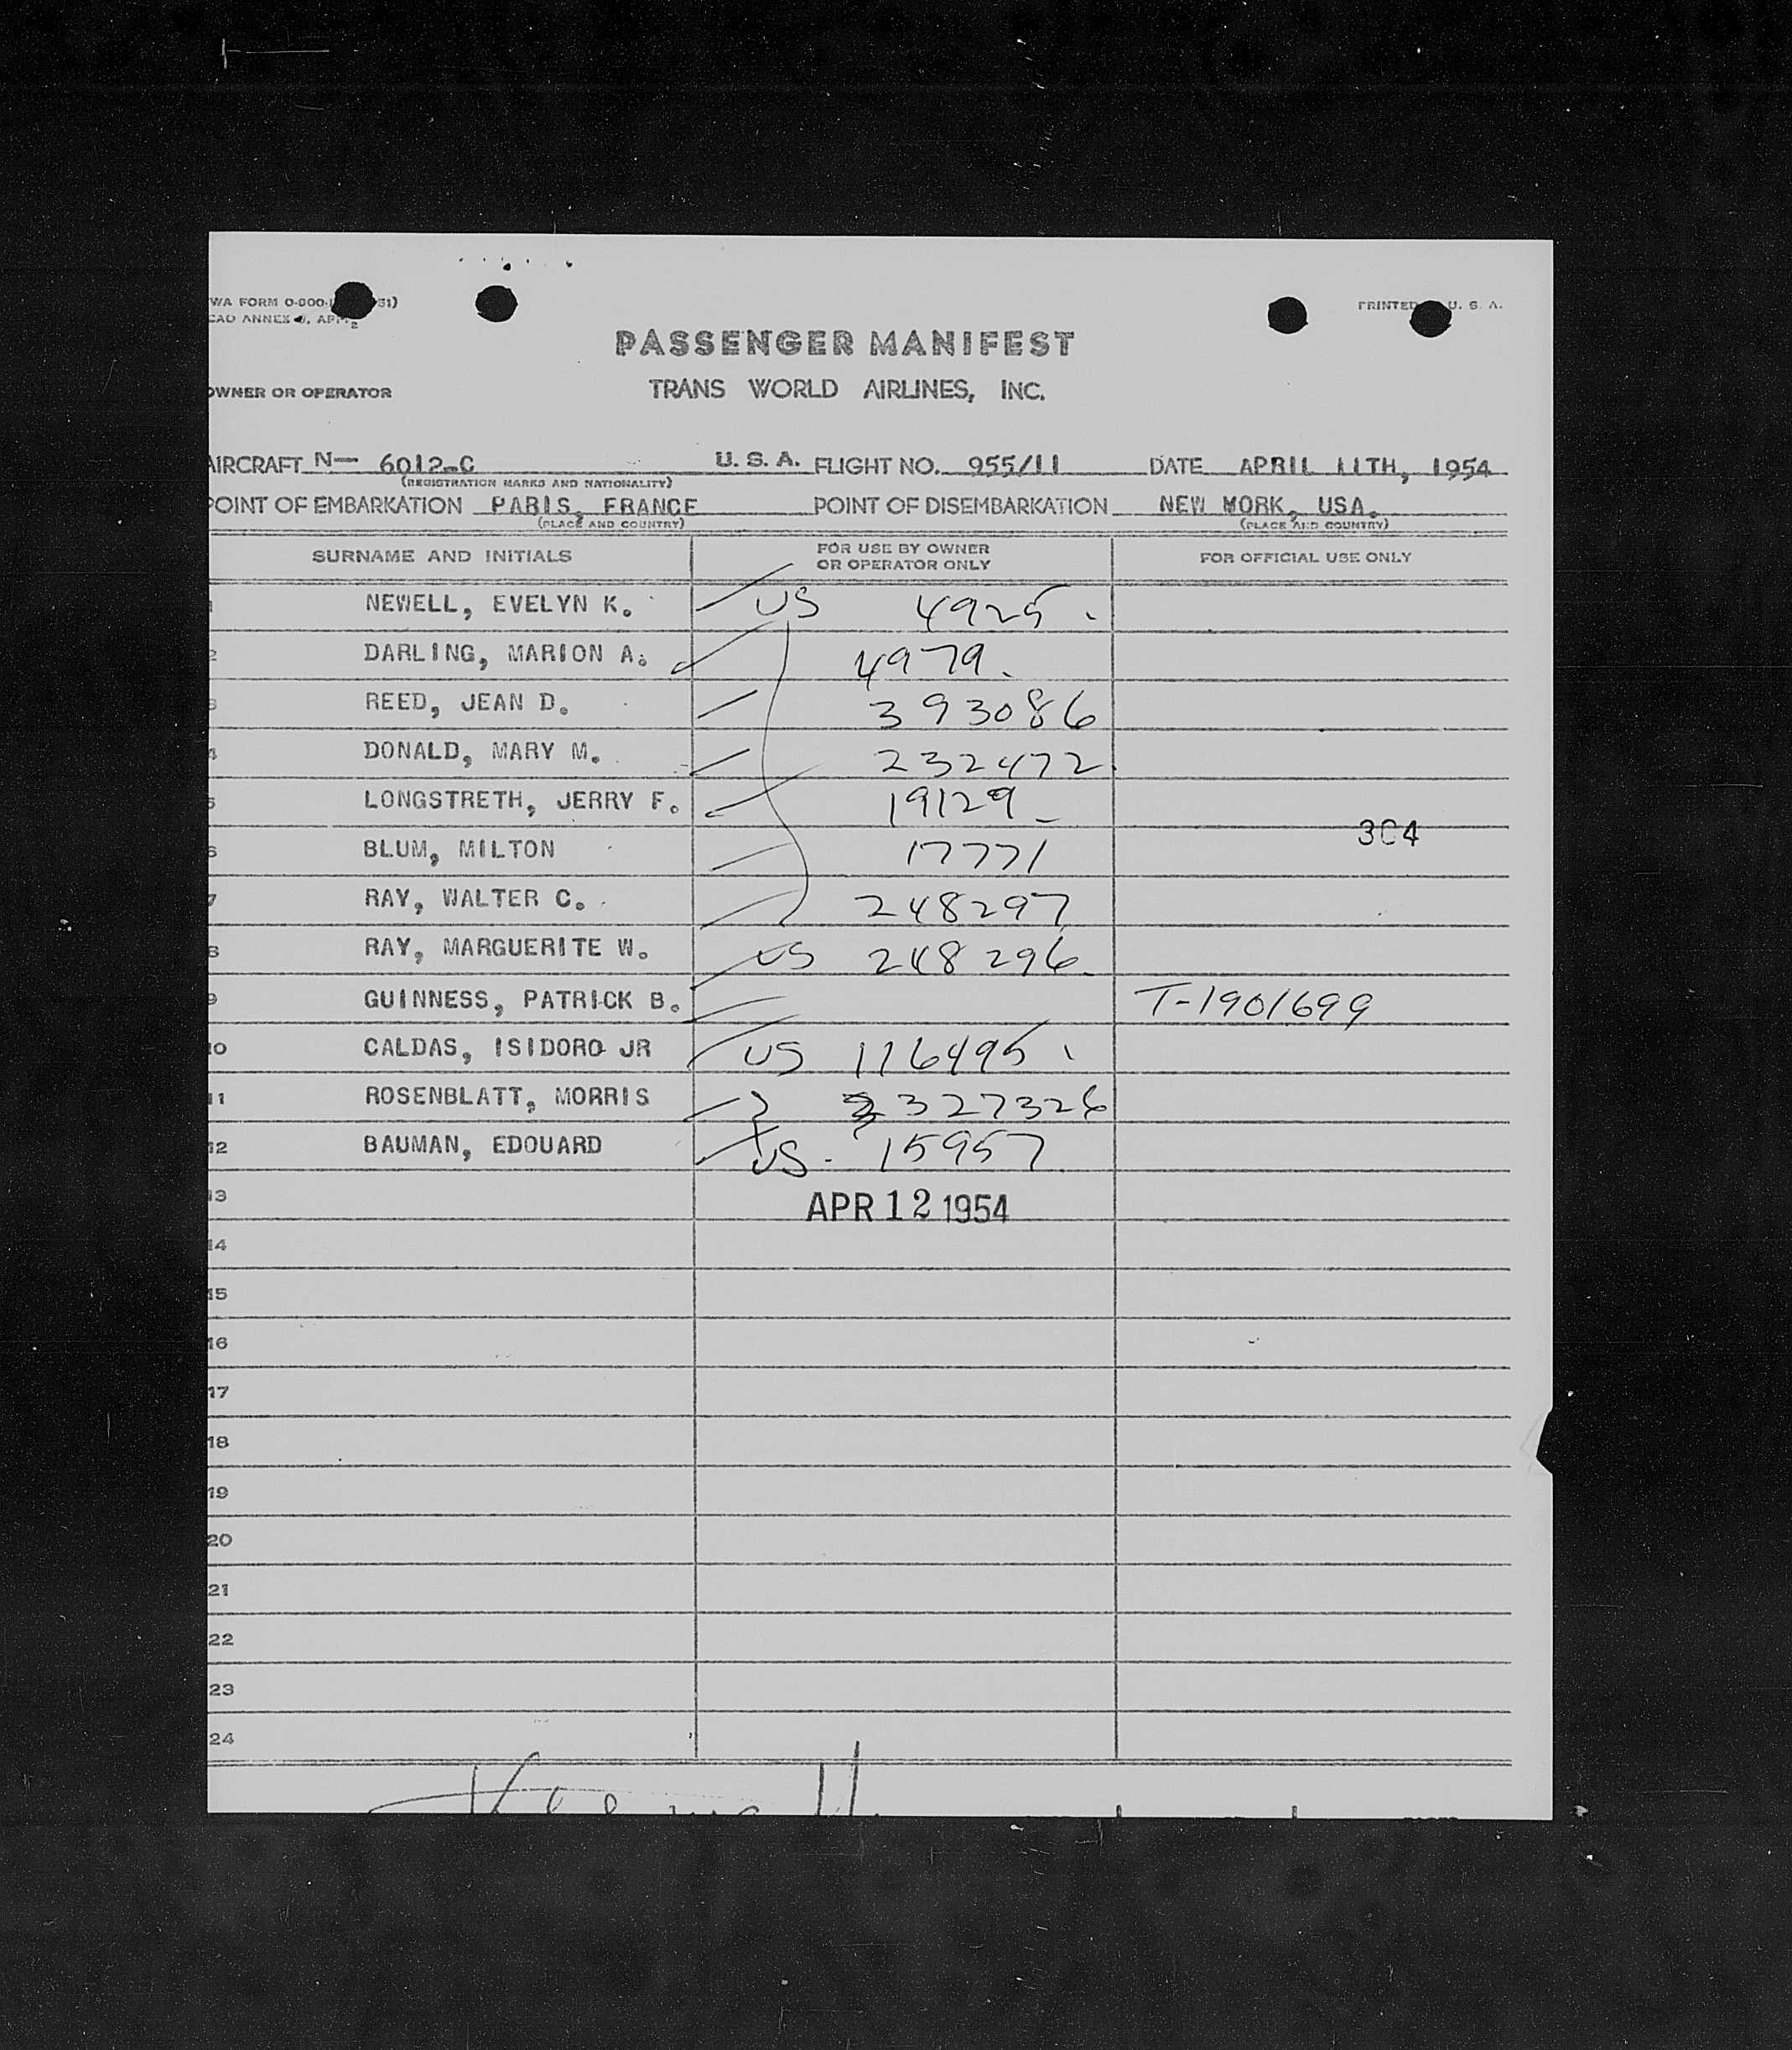 WA FORM 0-800- 51)
CAO ANNEX 9, APP. 2
PRINTED U. S. A.
PASSENGER MANIFEST
OWNER OR OPERATOR TRANS WORLD AIRLINES, INC.
AIRCRAFT N— 6012-C U. S. A. FLIGHT NO. 955/11 DATE APRIL 11TH, 1954
(REGISTRATION MARKS AND NATIONALITY)
POINT OF EMBARKATION PARIS, FRANCE POINT OF DISEMBARKATION NEW YORK, USA.
(PLACE AND COUNTRY) (PLACE AND COUNTRY)
SURNAME AND INITIALS FOR USE BY OWNER OR OPERATOR ONLY FOR OFFICIAL USE ONLY
1 NEWELL, EVELYN K. US 4925
2 DARLING, MARION A. 4979
3 REED, JEAN D. 393086
4 DONALD, MARY M. 232472
5 LONGSTRETH, JERRY F. 19129
304
6 BLUM, MILTON 17771
7 RAY, WALTER C. 248297
8 RAY, MARGUERITE W. US 248296
9 GUINNESS, PATRICK B. T-1901699
10 CALDAS, ISIDORO JR US 116495
11 ROSENBLATT, MORRIS 327326
12 BAUMAN, EDOUARD US 15957
13 APR 12 1954
14
15
16
17
18
19
20
21
22
23
24